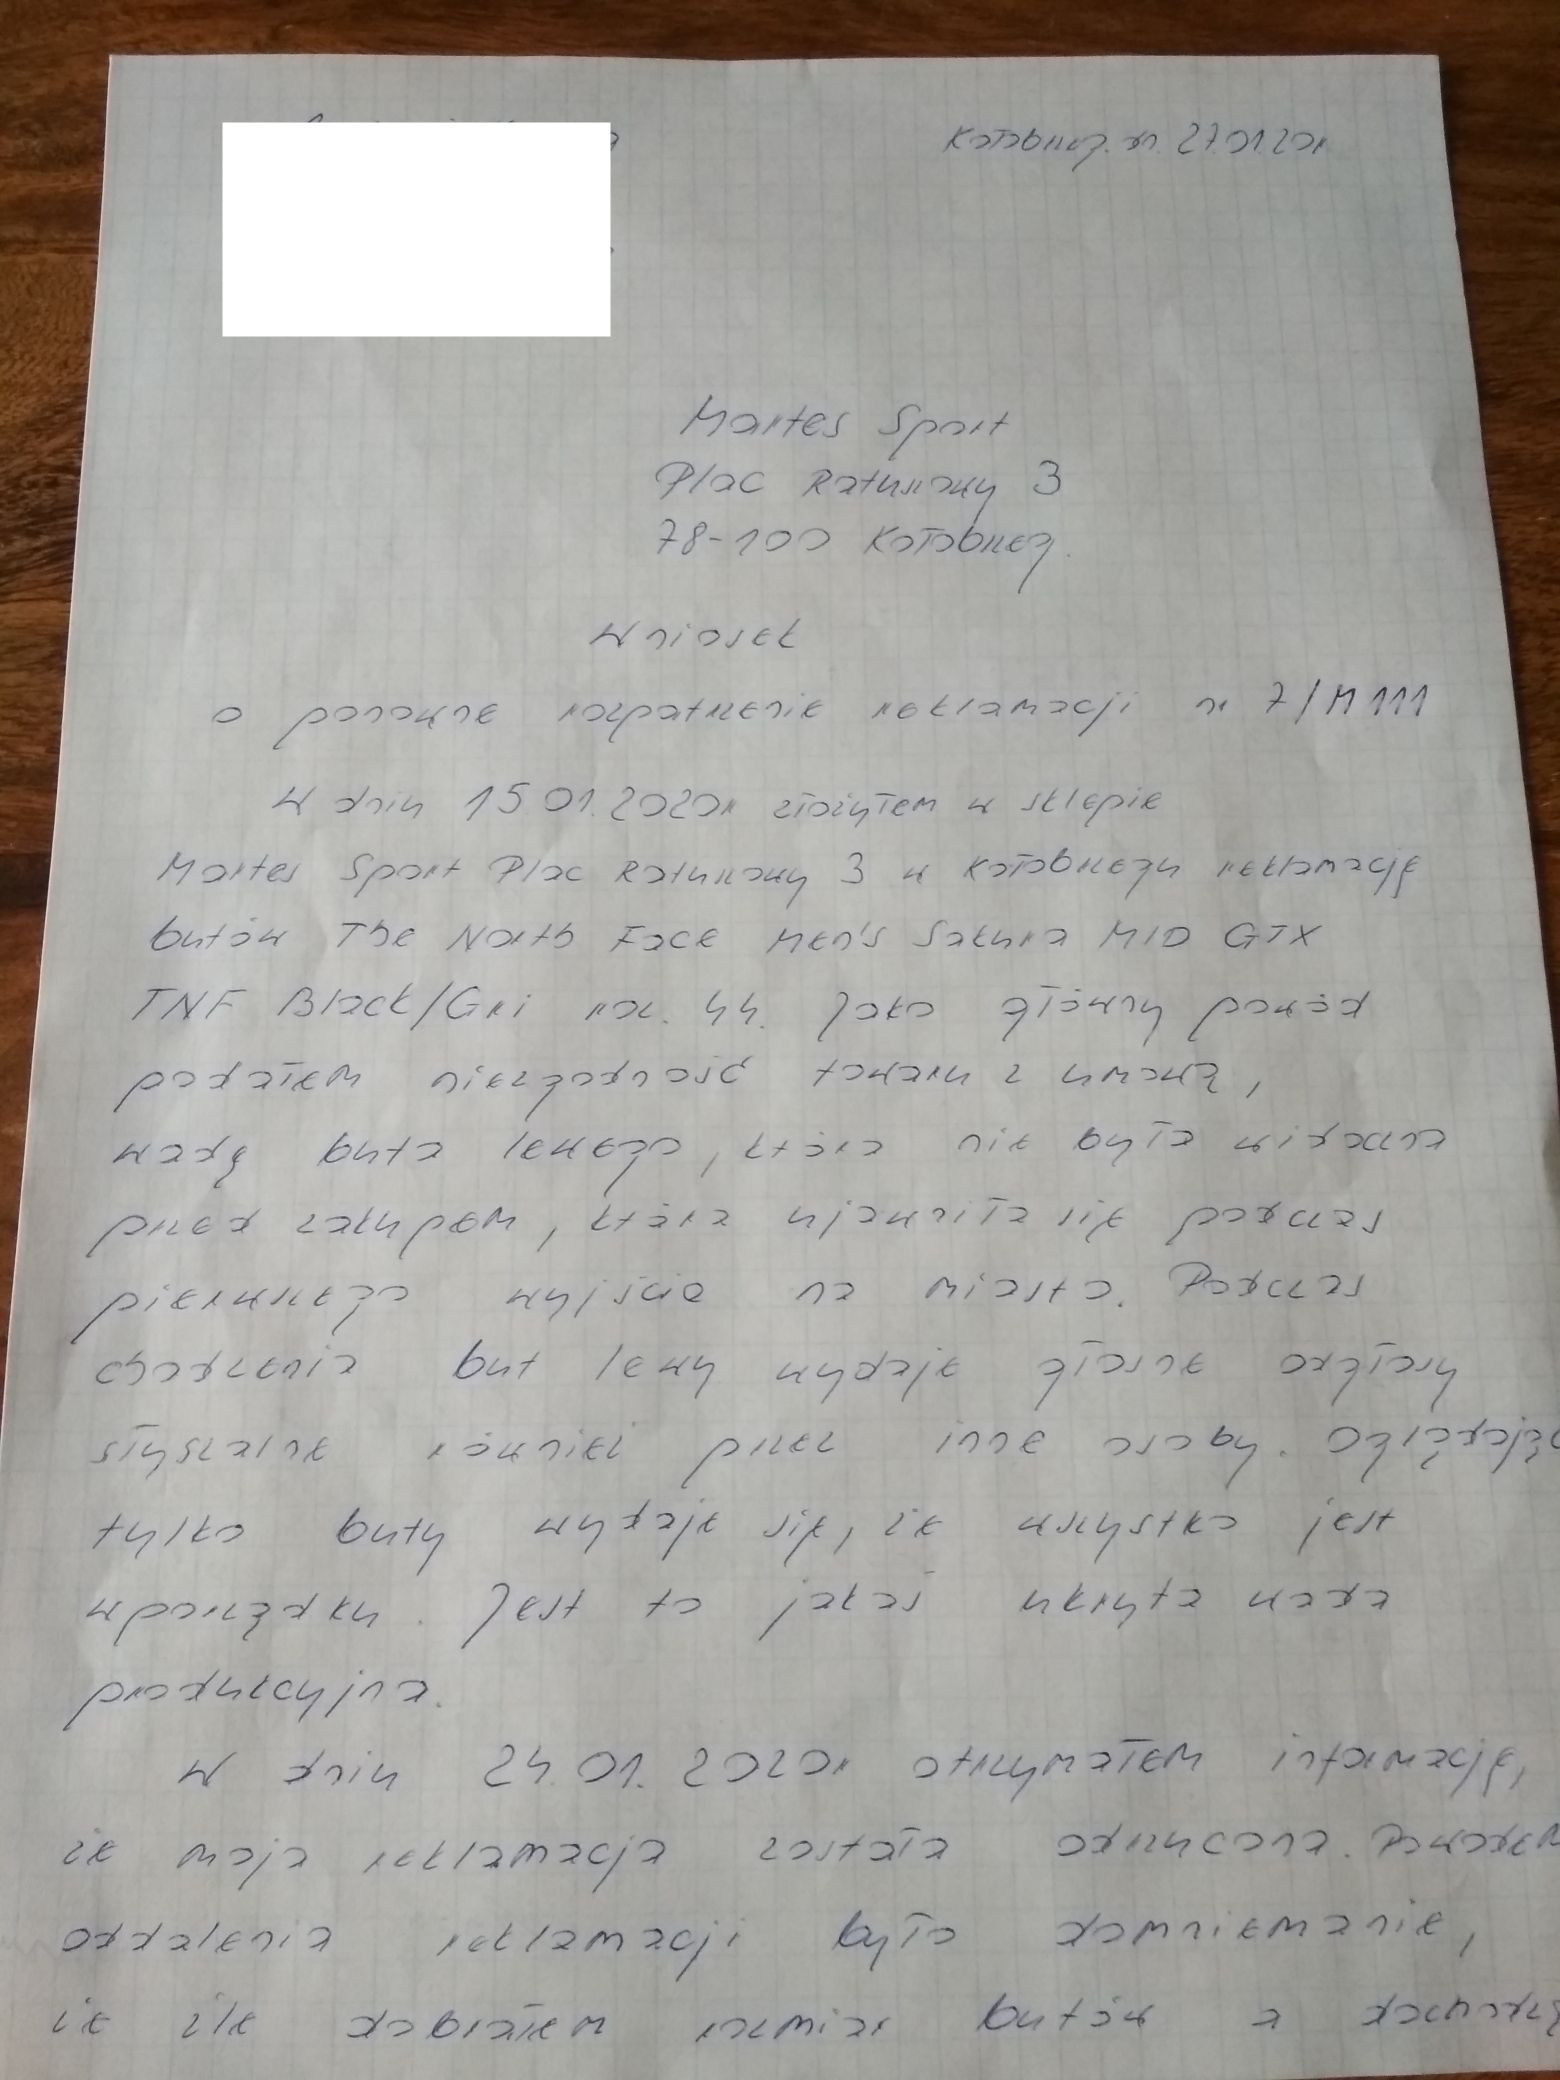 Kołobrzeg. dn. 27.01.20r
Martes Sport
Plac Ratuszowy 3
78-100 Kołobrzeg.
Wniosek
o ponowne rozpatrzenie reklamacji nr 7/M111
W dniu 15.01.2020r złożyłem w sklepie
Martes Sport Plac Ratuszowy 3 w Kołobrzegu reklamację
butów The North Face Men's Sakura MID GTX
TNF Black/Gri roz. 44. Jako główny powód
podałem niezgodność towaru z umową,
wadę buta lewego, która nie była widoczna
przed zakupem, która ujawniła się podczas
pierwszego wyjścia na miasto. Podczas
chodzenia but lewy wydaje głośne odgłosy
słyszalne również przez inne osoby. Oglądając
tylko buty wydaje się, że wszystko jest
wporządku. Jest to jakaś ukryta wada
produkcyjna.
W dniu 24.01.2020r otrzymałem informację,
że moja reklamacja została odrzucona. Powodem
oddalenia reklamacji było domniemanie,
że źle dobrałem rozmiar butów a dochodzą